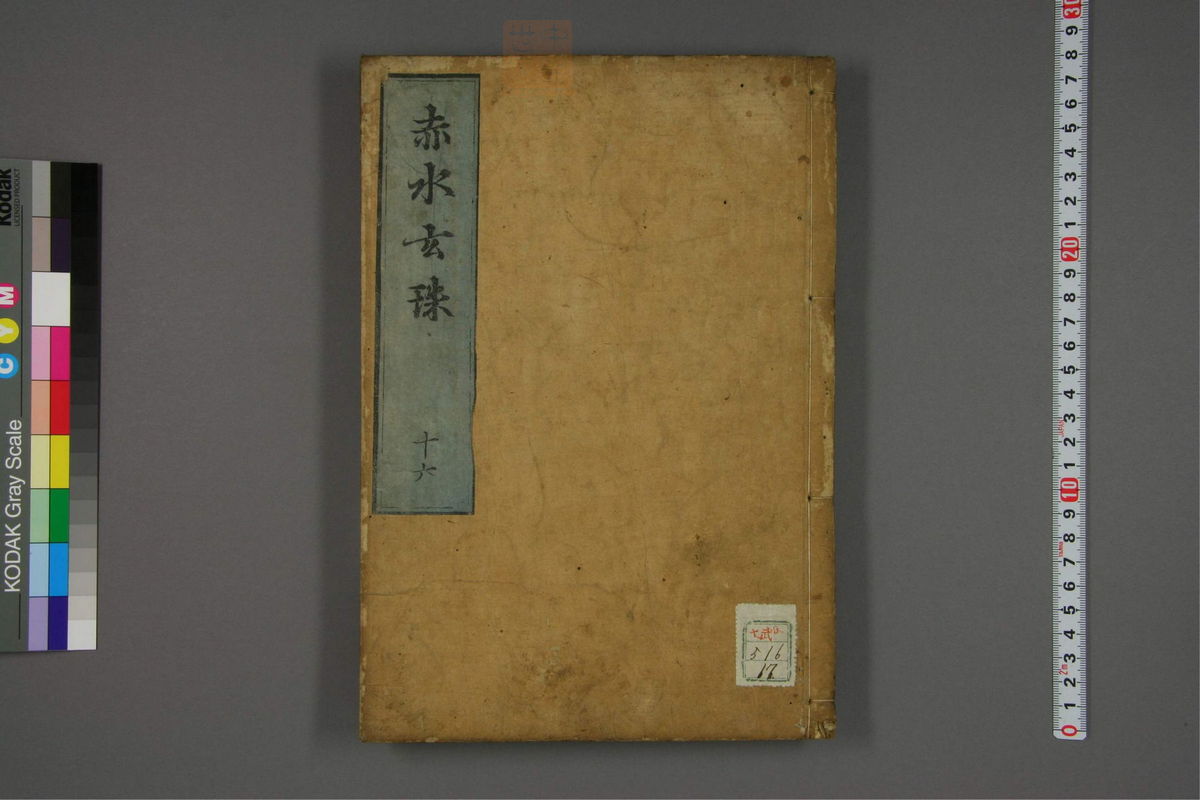 赤水玄珠
十六
516
17
Kodak
LICENSED PRODUCT
KODAK Gray Scale
C Y M
30
9
8
7
6
5
4
3
2
1
20
9
8
7
6
5
4
3
2
1
10
9
8
7
6
5
4
3
2
1
0